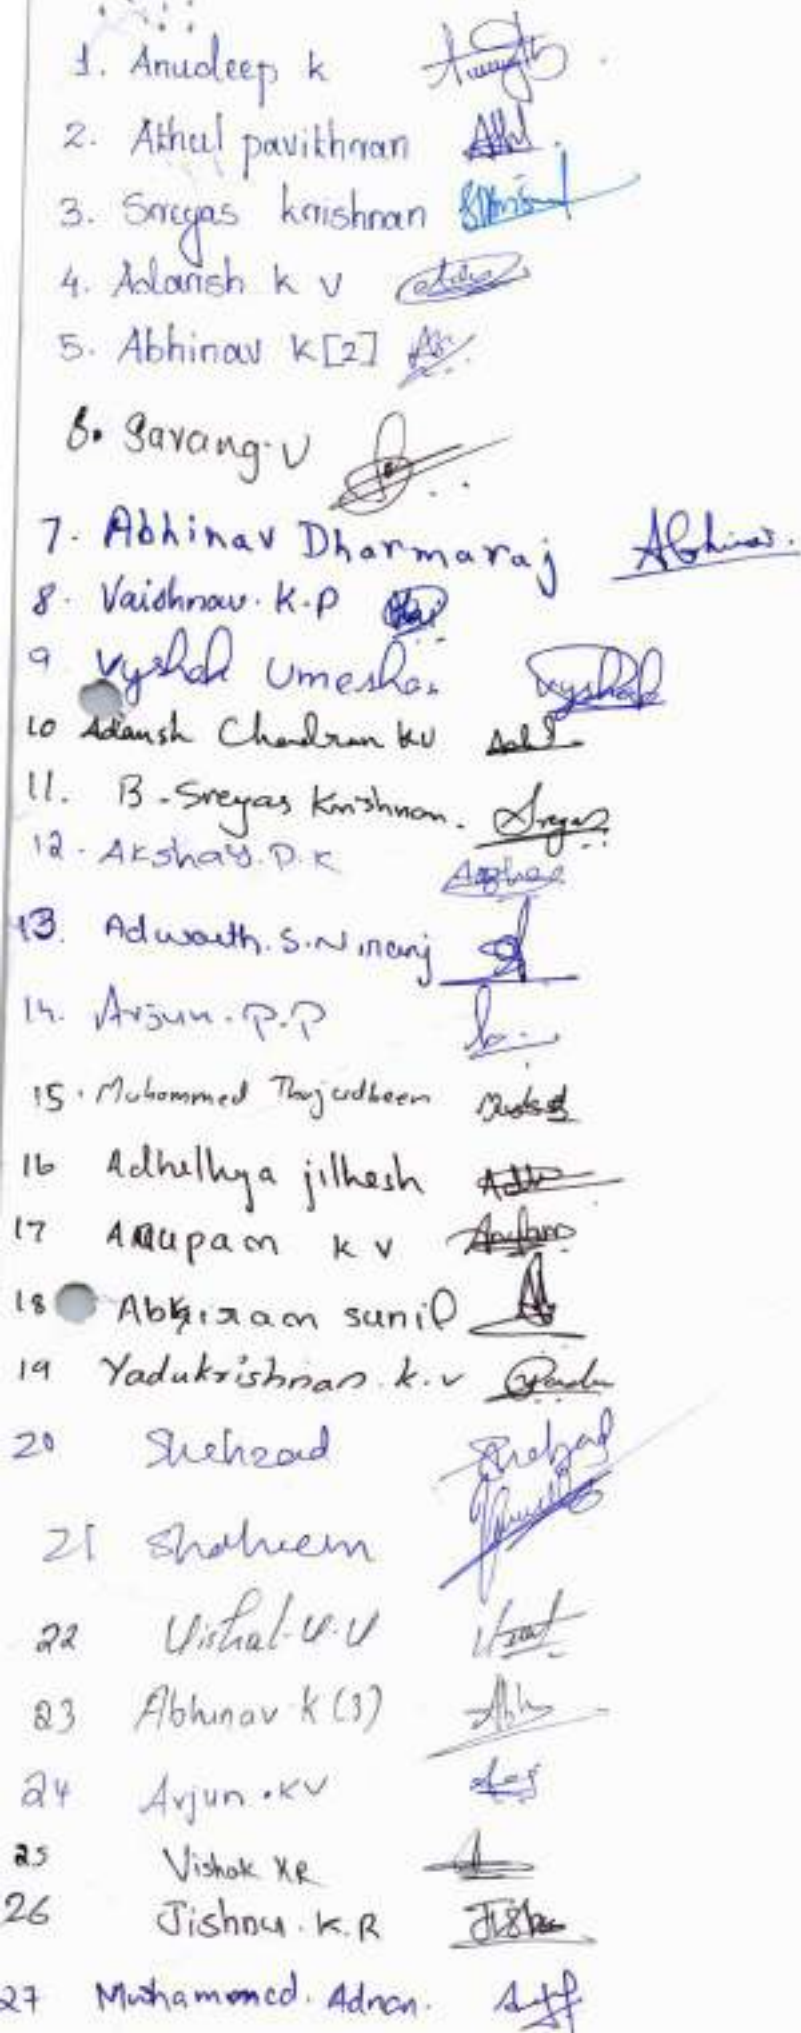 1. Anudeep k
2. Athul pavithran
3. Sreyas krishnan
4. Adarsh k v
5. Abhinav k[2]
6. Sarang. v
7. Abhinav Dharmaraj Abhinav.
8. Vaishnav. K.P
9 Vyshak Umeshan Vyshak
10 Adarsh Chandran KV
11. B. Sreyas Krishnan. Sreyas
12. Akshay. P. K
13. Adwaith. S. Niranj
14. Arjun. P. P
15. Muhammed Thajudheen
16 Adhethya jithesh
17 Anupam k v
18 Abhiram sunil
19 Yadukrishnan. k. v
20 Shehzad Shehzad
21 Shaheem
22 Vishal. V. V
23 Abhinav k (3)
24 Arjun. KV
25 Vishak KR
26 Jishnu. K. R
27 Muhammed. Adnan.